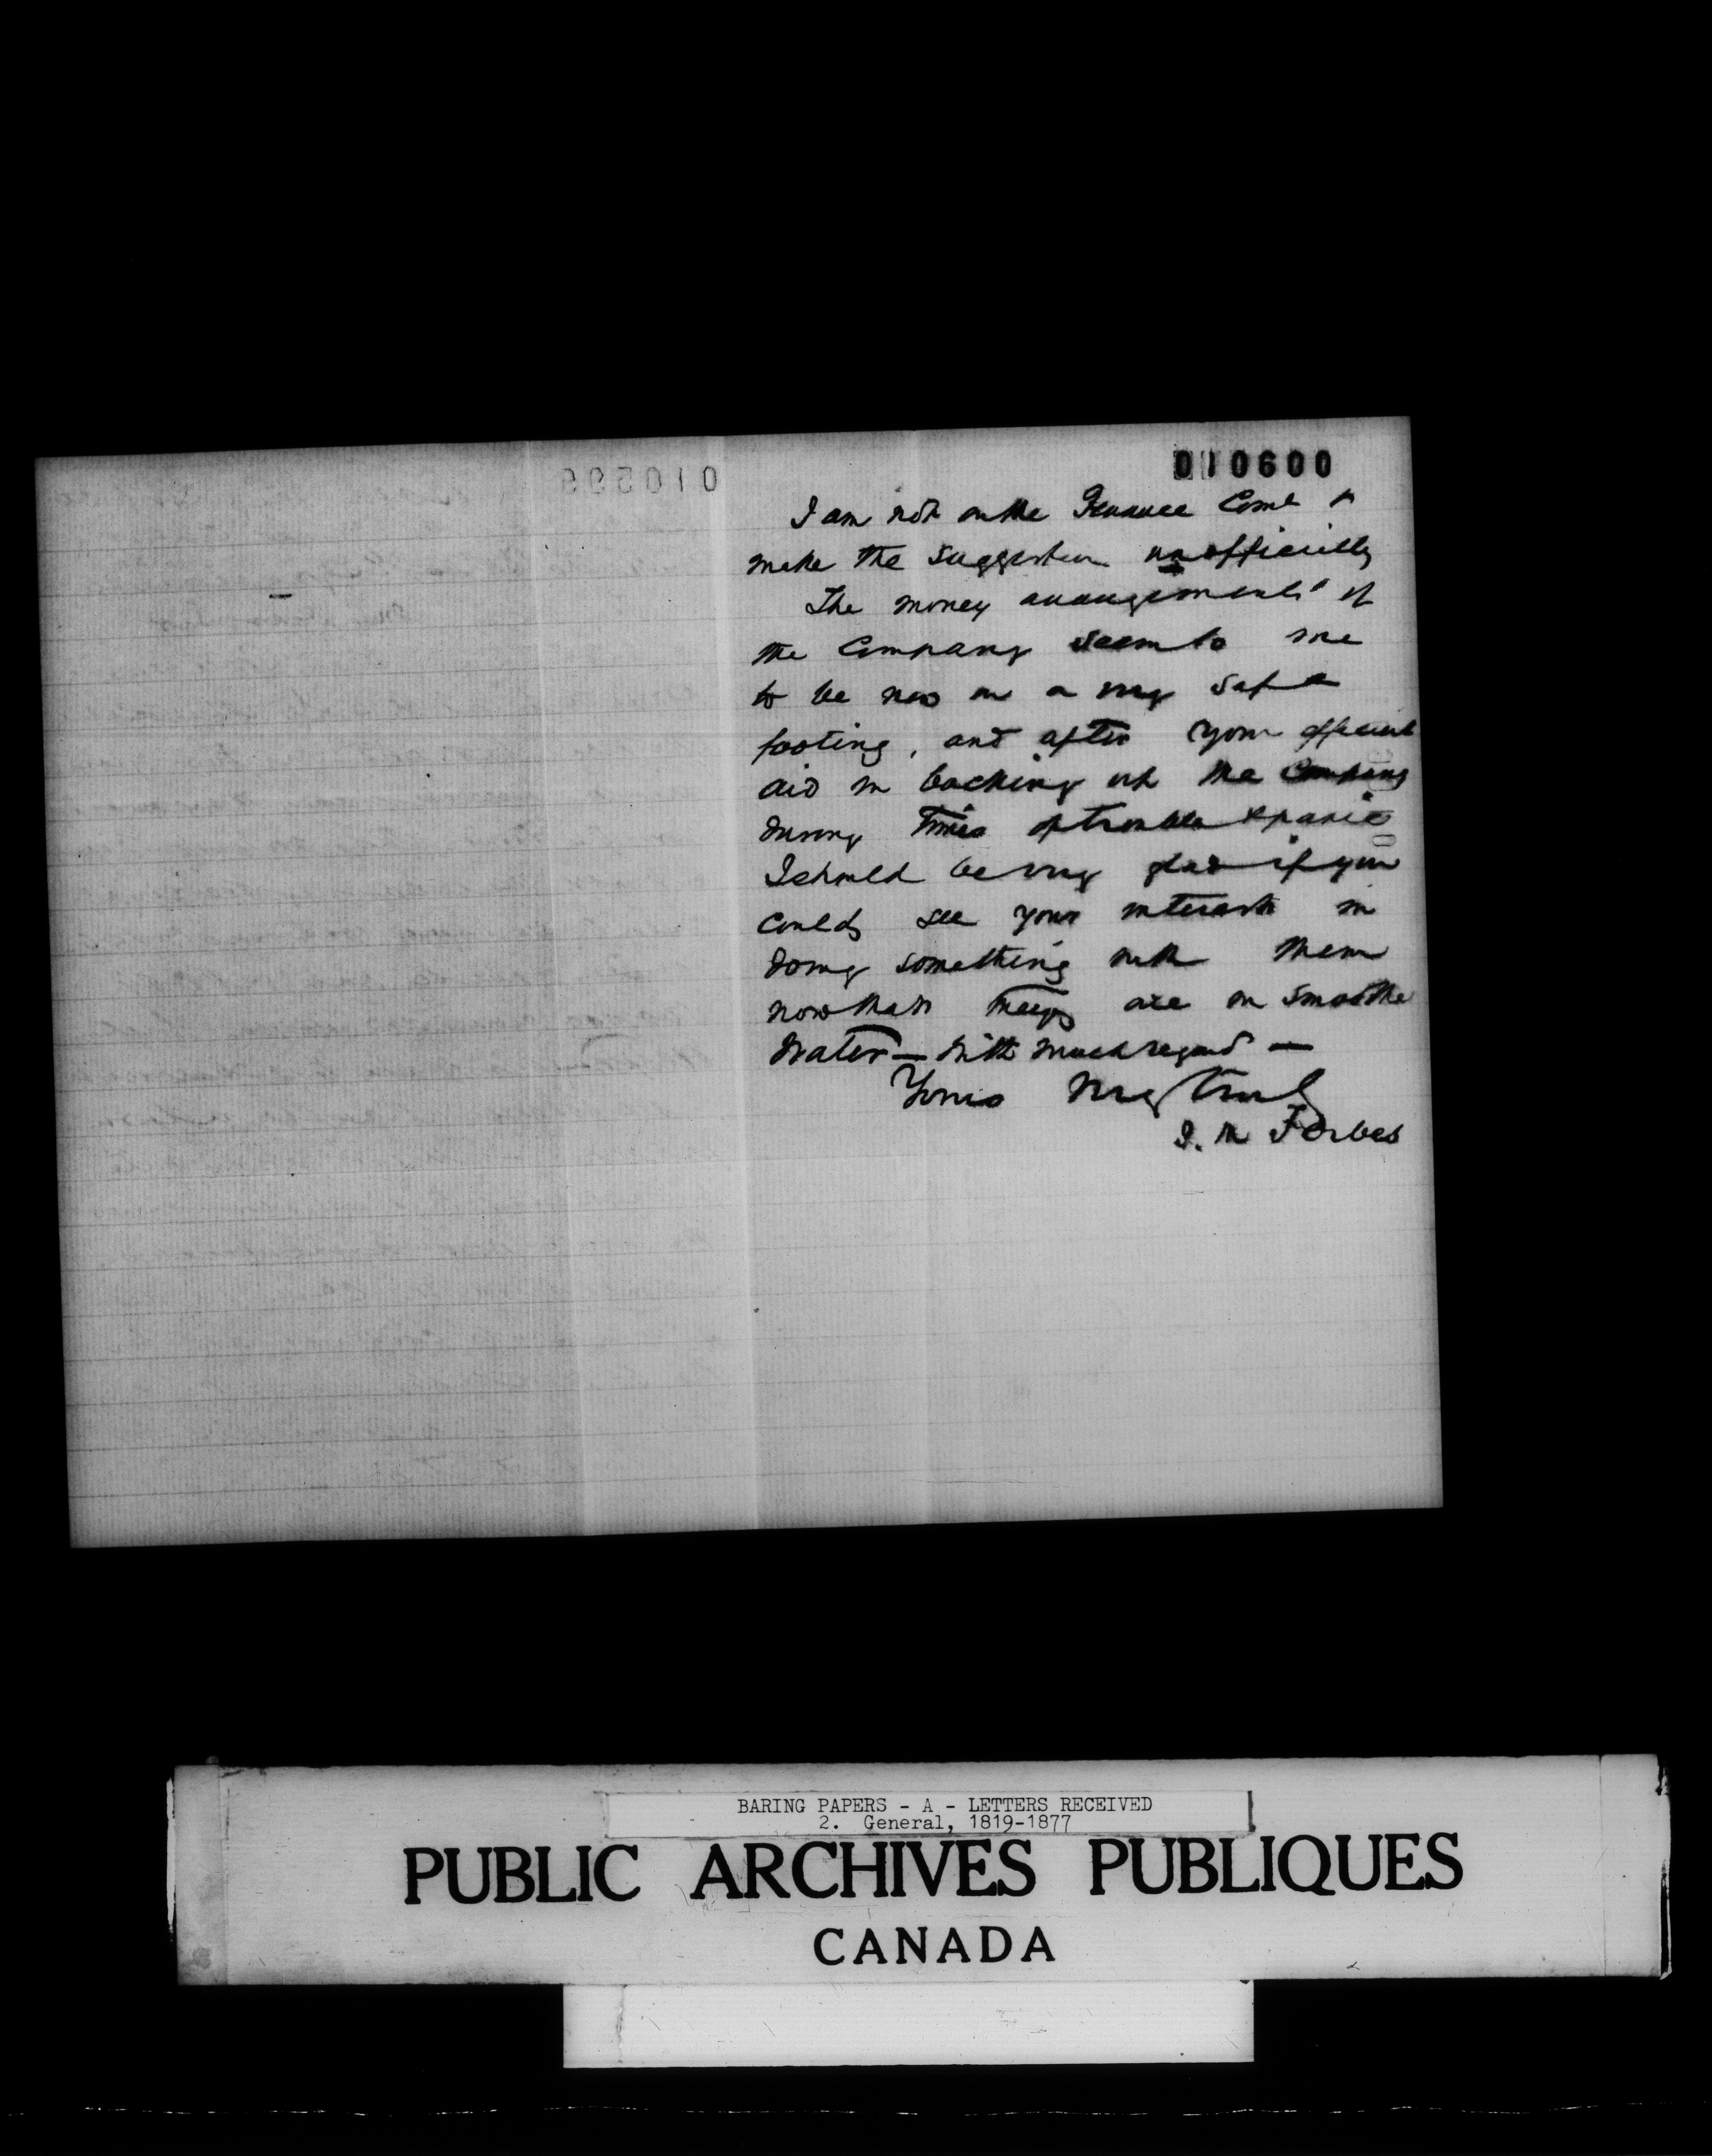 010600
I am not on the Finance Come &
make the suggestion unofficially
The money arrangements of
the Company seem to me
to be now on a very safe
footing, and after your efficient
aid in backing up the Company
during times of trouble & panic
I should be very glad if you
could see your interest in
doing something with them
now that they are in smoother
water — With much regard —
Yours very truly
J. M Forbes
BARING PAPERS - A - LETTERS RECEIVED
2. General, 1819-1877
PUBLIC ARCHIVES PUBLIQUES
CANADA